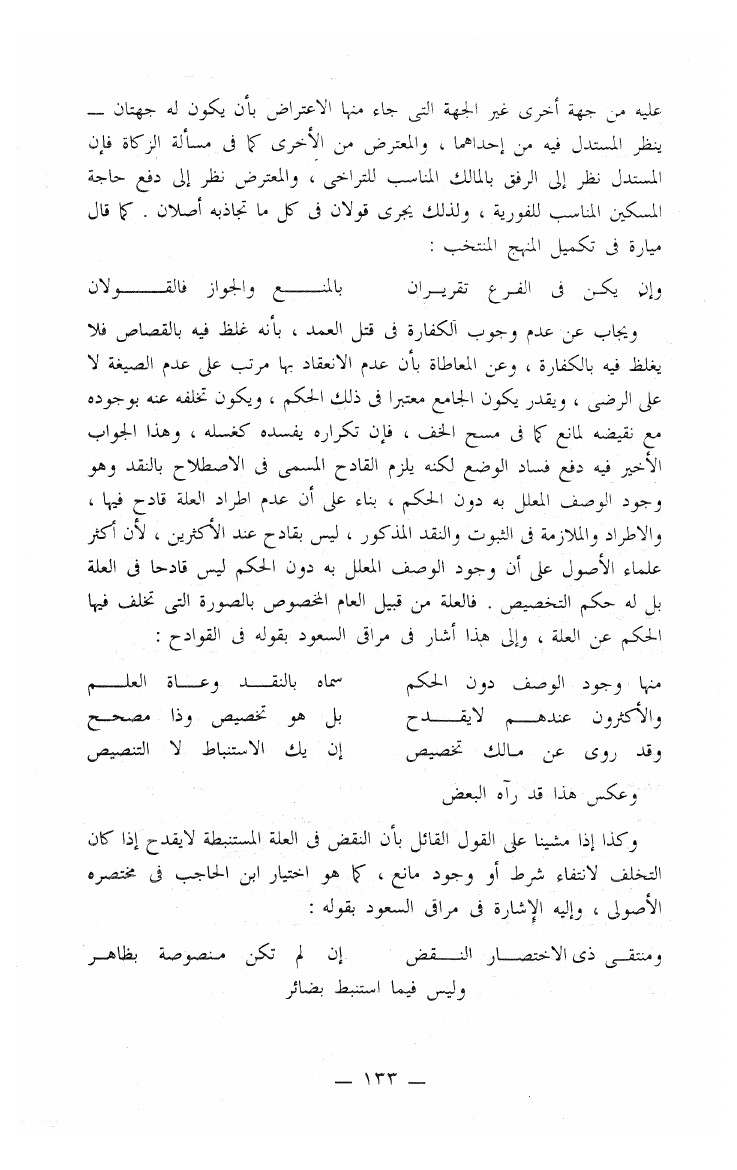 عليه من جهة أخرى غير الجهة التى جاء منها الاعتراض بأن يكون له جهتان ــ
ينظر المستدل فيه من إحداهما ، والمعترض من الأخرى كما فى مسألة الزكاة فإن
المستدل نظر إلى الرفق بالمالك المناسب للتراخى ، والمعترض نظر إلى دفع حاجة
المسكين المناسب للفورية ، ولذلك يجرى قولان فى كل ما تجاذبه أصلان . كما قال
ميارة فى تكميل المنهج المنتخب :
وإن يكـن فى الفـرع تقريـران بالمنـــع والجواز فالقـــولان
ويجاب عن عدم وجوب الكفارة فى قتل العمد ، بأنه غلظ فيه بالقصاص فلا
يغلظ فيه بالكفارة ، وعن المعاطاة بأن عدم الانعقاد بها مرتب على عدم الصيغة لا
على الرضى ، ويقدر يكون الجامع معتبرا فى ذلك الحكم ، ويكون تخلفه عنه بوجوده
مع نقيضه لمانع كما فى مسح الخف ، فإن تكراره يفسده كغسله ، وهذا الجواب
الأخير فيه دفع فساد الوضع لكنه يلزم القادح المسمى فى الاصطلاح بالنقد وهو
وجود الوصف المعلل به دون الحكم ، بناء على أن عدم اطراد العلة قادح فيها ،
والاطراد والملازمة فى الثبوت والنقد المذكور ، ليس بقادح عند الأكثرين ، لأن أكثر
علماء الأصول على أن وجود الوصف المعلل به دون الحكم ليس قادحا فى العلة
بل له حكم التخصيص . فالعلة من قبيل العام المخصوص بالصورة التى تخلف فيها
الحكم عن العلة ، وإلى هذا أشار فى مراقى السعود بقوله فى القوادح :
منها وجود الوصف دون الحكم سماه بالنقــد وعــاة العلــم
والأكثرون عندهــم لايقــدح بل هو تخصيص وذا مصحــح
وقد روى عن مـالك تخصيص إن يك الاستنباط لا التنصيص
وعكس هذا قد رآه البعض
وكذا إذا مشينا على القول القائل بأن النقض فى العلة المستنبطة لايقدح إذا كان
التخلف لانتفاء شرط أو وجود مانع ، كما هو اختيار ابن الحاجب فى مختصره
الأصولى ، وإليه الإشارة فى مراقى السعود بقوله :
ومنتقـى ذى الاختصــار النــقض إن لم تكن منصوصة بظاهــر
وليس فيما استنبط بضائر
ــ ١٣٣ ــ